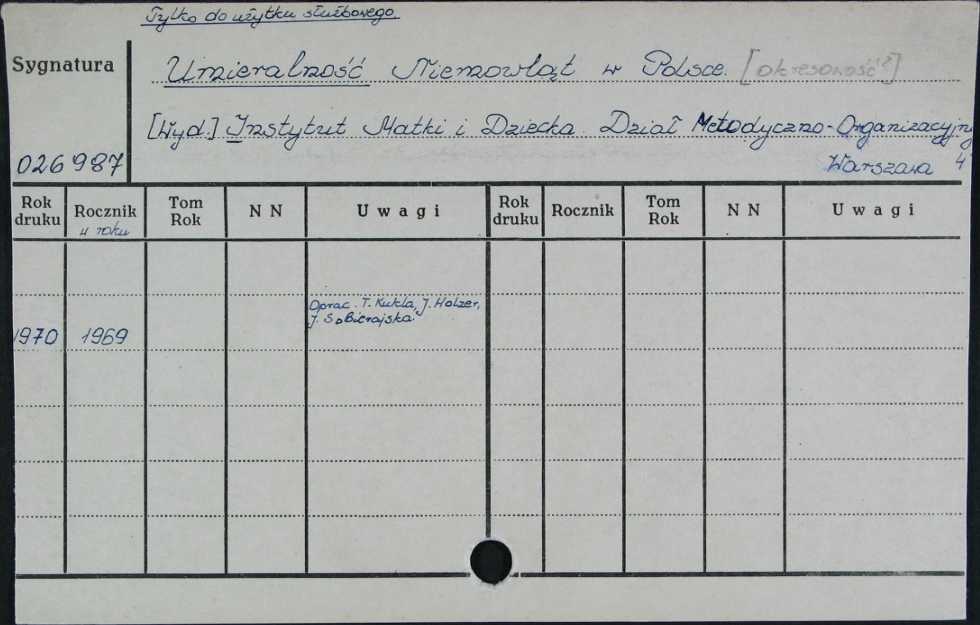 Tylko do użytku służbowego.
Sygnatura
Umieralność Niemowląt w Polsce. [okresowość?]
[Wyd.] Instytut Matki i Dziecka. Dział Metodyczno-Organizacyjny
026987
Warszawa 4
Rok druku Rocznik Tom Rok N N Uwagi Rok druku Rocznik Tom Rok N N Uwagi
w roku
Oprac. T. Kukla, J. Holzer,
J. Sobierajska.
1970 1969